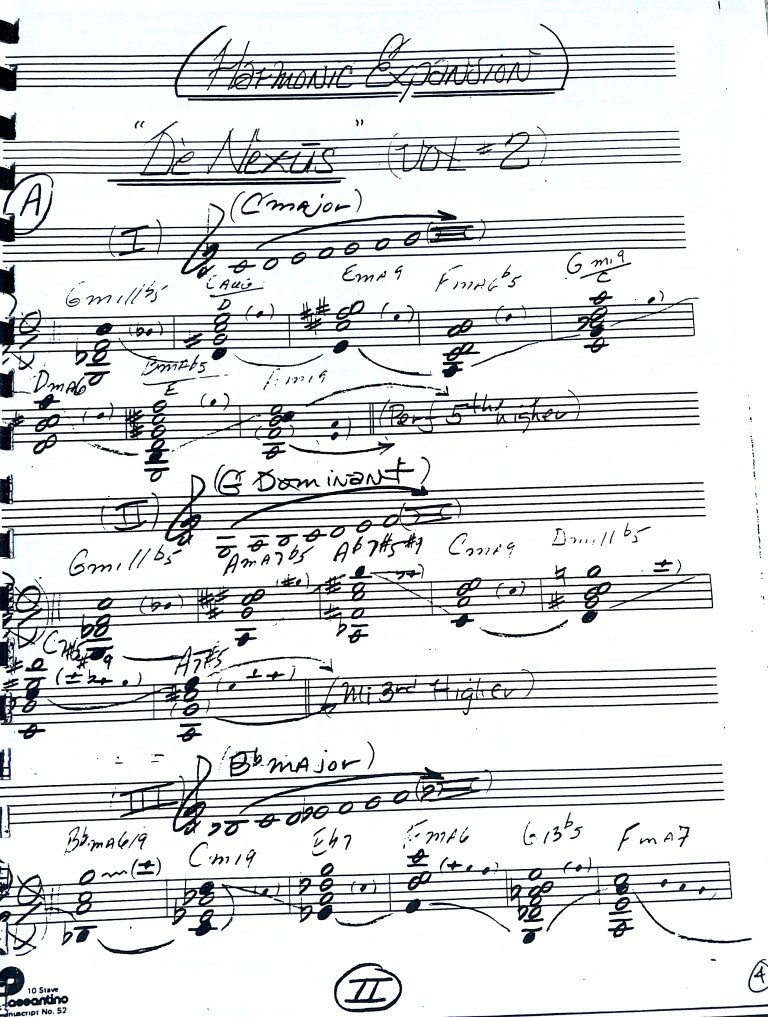 (Harmonic Expansion)
"De Nexus" (Vol #2)
A
(I) (C major)
Gmi11b5 Caug/D Ema9 Fma6b5 Gmi9/C
Dma6 Bmab5/E Fmi9
(Perf 5th higher)
(II) (G Dominant)
Gmi11b5 Ama7b5 Ab7#5#9 Cma9 Dmi11b5
C7#5#9 A7#5
(Mi 3rd Higher)
III (Bb major)
Bbma6/9 Cmi9 Eb7 Fma6 G13b5 Fma7
10 Stave
manuscript No. 52
II
4